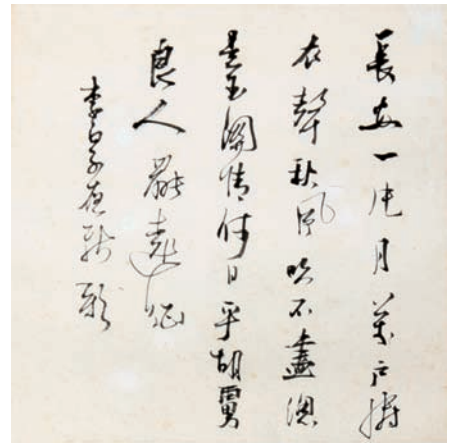 長安一片月萬戶擣
衣聲秋風吹不盡總
是玉關情何日平胡虜
良人罷遠征
李白子夜歌